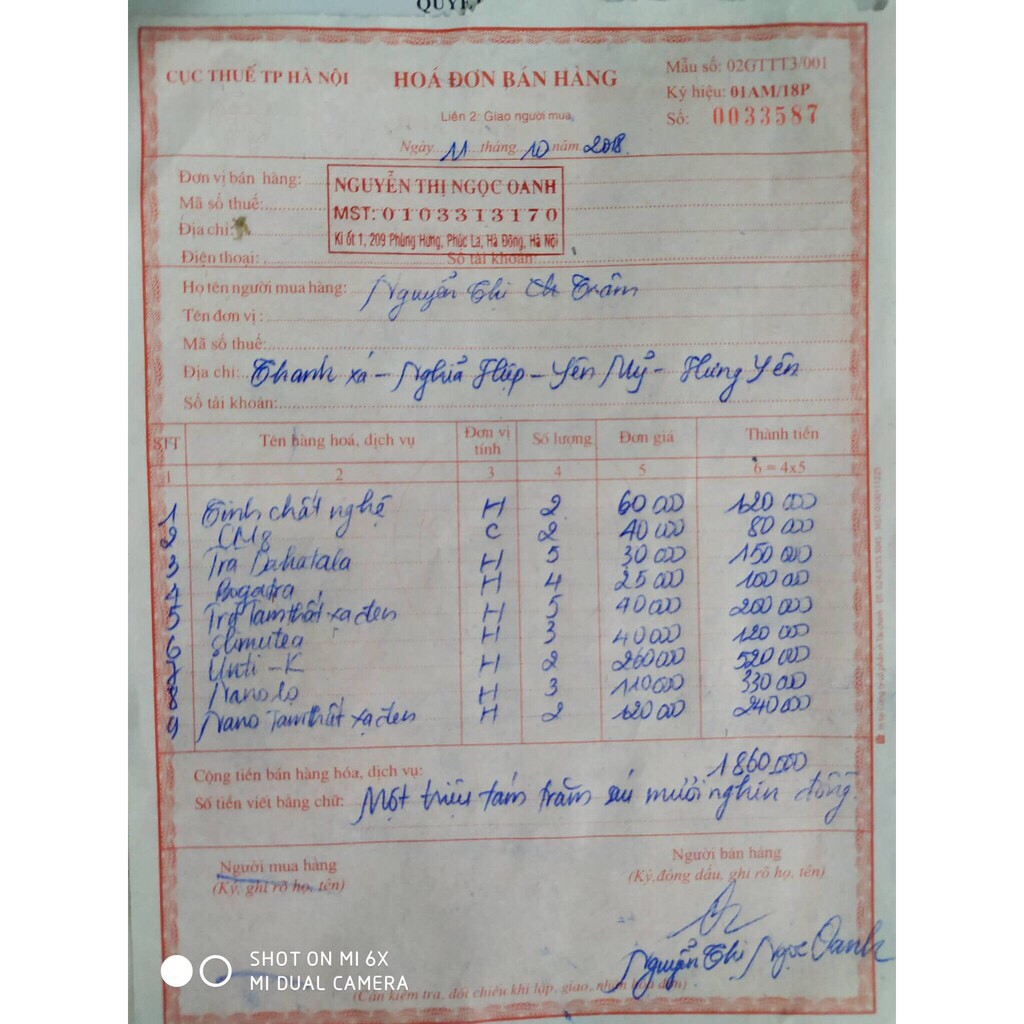 CỤC THUẾ TP HÀ NỘI
HOÁ ĐƠN BÁN HÀNG
Mẫu số: 02GTTT3/001
Ký hiệu: 01AM/18P
Liên 2: Giao người mua
Số: 0033587
Ngày 11 tháng 10 năm 2018.
Đơn vị bán hàng:
NGUYỄN THỊ NGỌC OANH
Mã số thuế:
MST: 0103313170
Địa chỉ:
Ki ốt 1, 209 Phùng Hưng, Phúc La, Hà Đông, Hà Nội
Điện thoại: Số tài khoản:
Họ tên người mua hàng: Nguyễn Thị Trâm
Tên đơn vị:
Mã số thuế:
Địa chỉ: Thanh xá - Nghĩa Hiệp - Yên Mỹ - Hưng Yên
Số tài khoản:
STT Tên hàng hoá, dịch vụ Đơn vị tính Số lượng Đơn giá Thành tiền
1 2 3 4 5 6 = 4x5
1 Tinh chất nghệ H 2 60 000 120 000
2 CM8 C 2 40 000 80 000
3 Trà Dahatala H 5 30 000 150 000
4 Bogatra H 4 25 000 100 000
5 Trà Tam thất xạ đen H 5 40 000 200 000
6 Slimutea H 3 40 000 120 000
7 Unti-K H 2 260 000 520 000
8 Nano lọ H 3 110 000 330 000
9 Nano Tam thất xạ đen H 2 120 000 240 000
Cộng tiền bán hàng hóa, dịch vụ: 1 860 000
Số tiền viết bằng chữ: Một triệu tám trăm sáu mươi nghìn đồng.
Người mua hàng
(Ký, ghi rõ họ, tên)
Người bán hàng
(Ký, đóng dấu, ghi rõ họ, tên)
Nguyễn Thị Ngọc Oanh
(Cần kiểm tra, đối chiếu khi lập, giao, nhận hóa đơn)
SHOT ON MI 6X
MI DUAL CAMERA